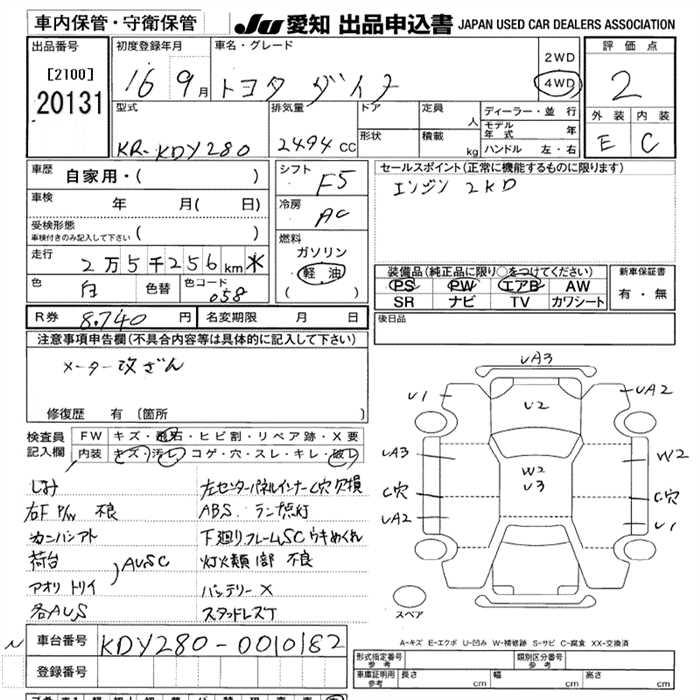 車内保管・守衛保管
JU 愛知 出品申込書 JAPAN USED CAR DEALERS ASSOCIATION
出品番号
[2100]
20131
初度登録年月
16 9月
車名・グレード
トヨタ ダイナ
2WD
4WD
評価点
2
外装 内装
E C
型式
KR-KDY280
排気量
2494 CC
ドア
形状
定員
人
積載
kg
ディーラー・並行
モデル年式 年
ハンドル 左・右
車歴
自家用・( )
車検 年 月( 日)
受検形態
車検付きのみ記入して下さい ( )
走行
2万5千256km
色 白 色替 色コード 058
シフト
F5
冷房
AC
燃料
ガソリン
軽油
( )
セールスポイント(正常に機能するものに限ります)
エンジン 2KD
装備品(純正品に限り○をつけてください)
PS PW エアB AW
SR ナビ TV カワシート
新車保証書
有・無
R券 8,740 円 名変期限 月 日
後日品
注意事項申告欄(不具合内容等は具体的に記入して下さい)
メーター改ざん
修復歴 有 〔箇所
検査員
記入欄
FW キズ・飛石・ヒビ割・リペア跡・X要
内装 キズ・汚レ・コゲ・穴・スレ・キレ・破レ
しみ
右F P/W 不良
荷台
アオリ トリイ
AUSC
各AUS
左センターパネルインナーC穴欠損
ABS ランプ点灯
下廻りフレームSCウキめくれ
灯火類1部不良
バッテリーX
スタッドレスT
UA3
U1
U2
UA2
UA3
W2
U3
W2
C穴
C穴
UA2
U1
スペア
A-キズ E-エクボ U-凹み W-補修跡 S-サビ C-腐食 XX-交換済
車台番号 KDY280-0010182
登録番号
形式指定番号
参考
類別区分番号
参考
車庫証明用
参考
長さ cm 幅 cm 高さ cm